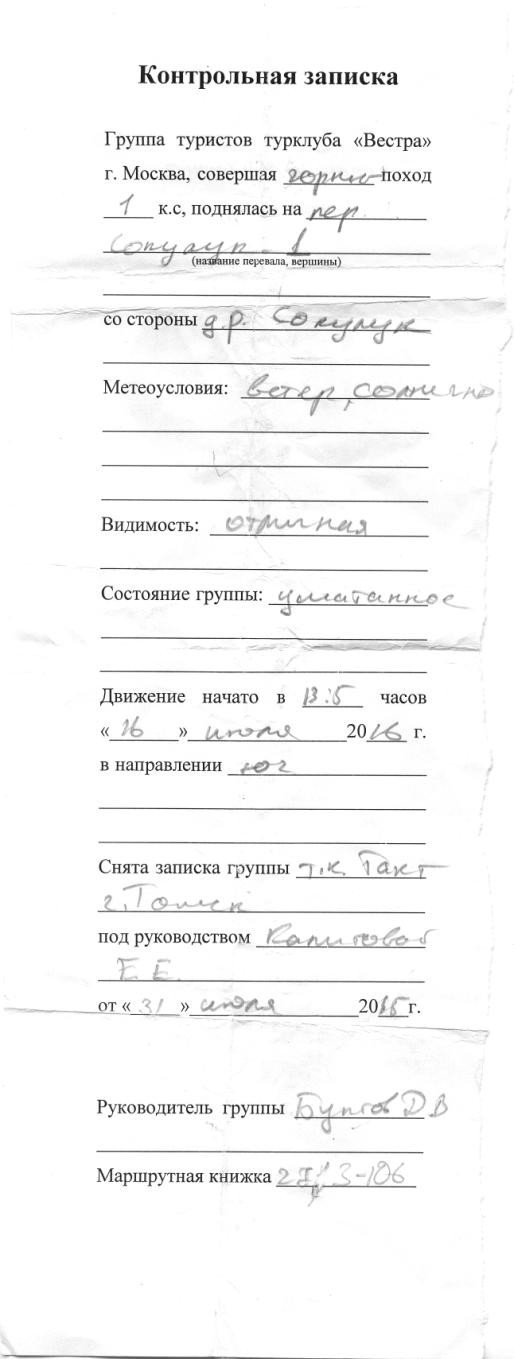 Контрольная записка
Группа туристов турклуба «Вестра»
г. Москва, совершая горный поход
1 к.с, поднялась на пер.
Сокулук - 1
(название перевала, вершины)
со стороны д.р. Сокулук
Метеоусловия: ветер, солнечно
Видимость: отличная
Состояние группы: уматанное
Движение начато в часов
«16» июля 2016 г.
в направлении юг
Снята записка группы т.к. Такт
г. Томск
под руководством
Е.Е.
от «31» июля 2015 г.
Руководитель группы Д В
Маршрутная книжка